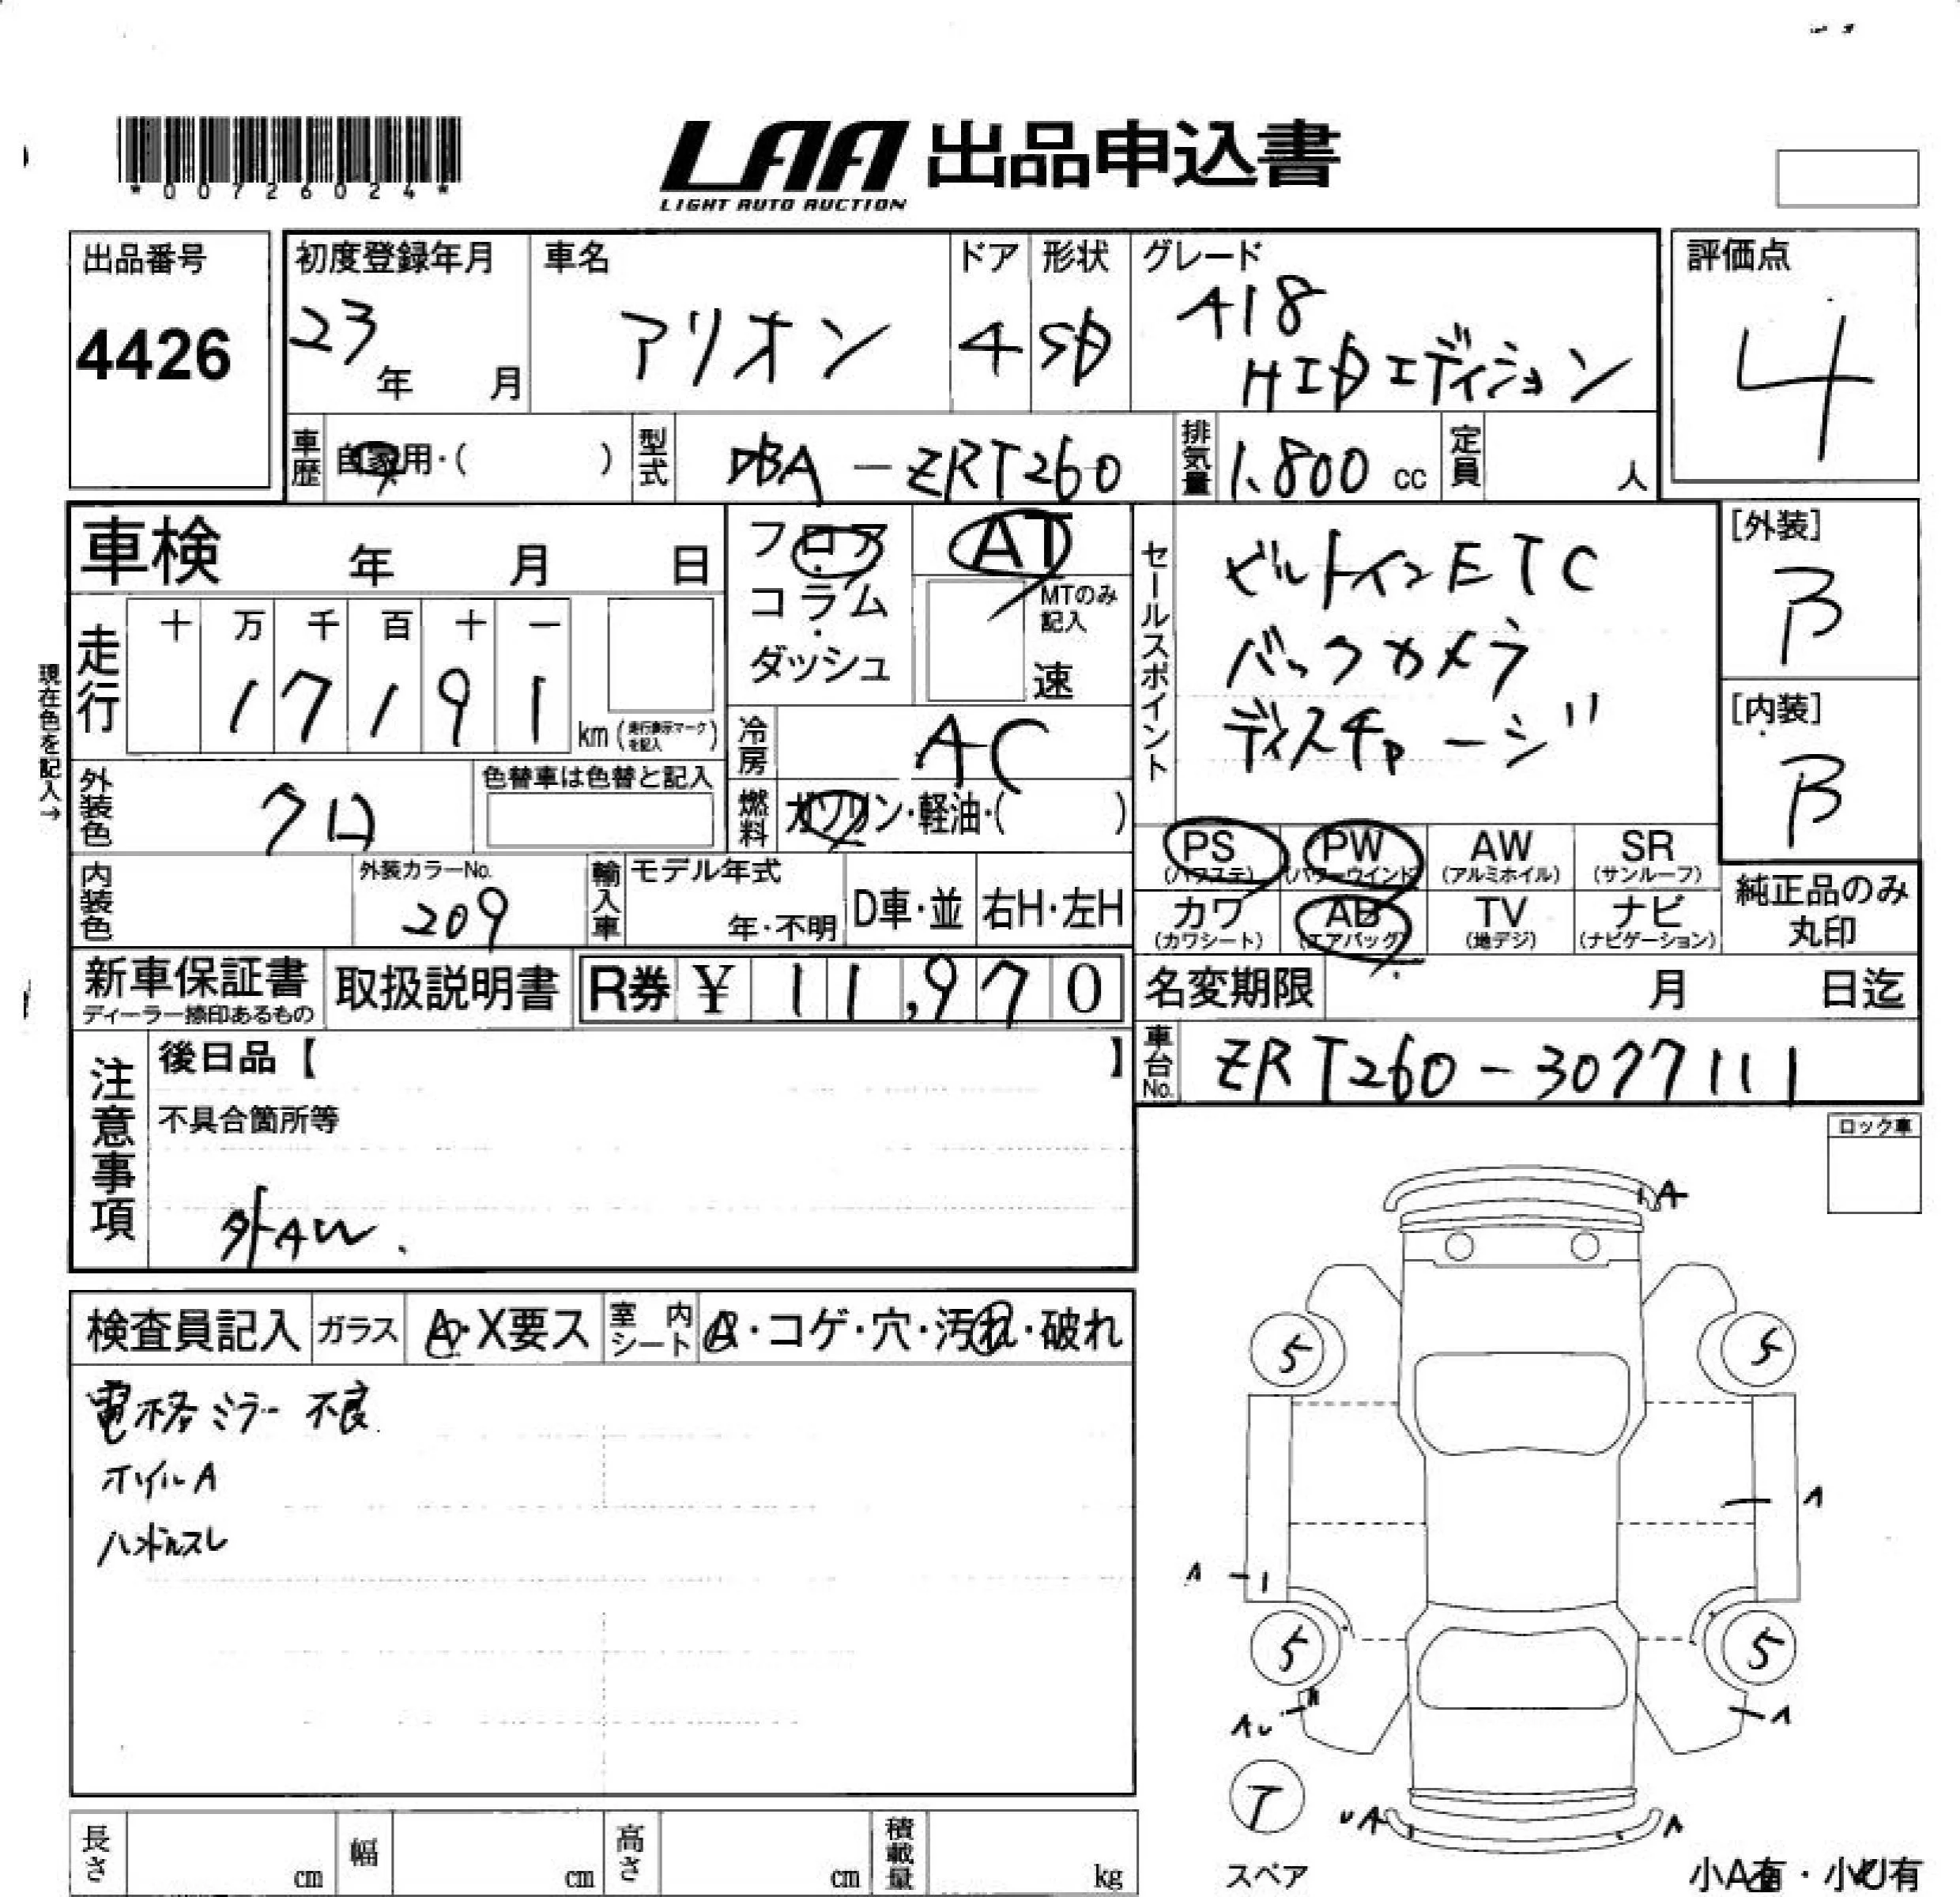 *00726024*
LAA 出品申込書
LIGHT AUTO AUCTION
出品番号
4426
初度登録年月
23年 月
車名
アリオン
ドア
4
形状
SD
グレード
A18
HIDエディション
評価点
4
車歴
自家用・( )
型式
DBA-ZRT260
排気量
1.800 cc
定員
人
車検 年 月 日
フロア
コラム
ダッシュ
AT
MTのみ記入
速
セールスポイント
ビルトインETC
バックカメラ
ディスチャージ
[外装]
B
[内装]
B
走行
十 万 千 百 十 一
1 7 1 9 1
km (走行表示マークを記入)
現在色を記入→
冷房
AC
外装色
クロ
色替車は色替と記入
燃料
ガソリン・軽油・( )
PS (パワステ)
PW (パワーウインド)
AW (アルミホイル)
SR (サンルーフ)
カワ (カワシート)
AB (エアバッグ)
TV (地デジ)
ナビ (ナビゲーション)
純正品のみ
丸印
内装色
外装カラーNo.
209
輸入車
モデル年式
年・不明
D車・並
右H・左H
新車保証書
ディーラー捺印あるもの
取扱説明書
R券 ¥ 11,970
名変期限 月 日迄
車台No.
ZRT260-3077111
注意事項
後日品【 】
不具合箇所等
外AW.
ロック車
検査員記入
ガラス
A・X要ス
室内シート
A・コゲ・穴・汚れ・破れ
電格ミラー不良
ホイルA
ハンドルスレ
A
5
5
A
A
5
5
AU
A
T
スペア
UA
A
小A有・小U有
長さ cm
幅 cm
高さ cm
積載量 kg